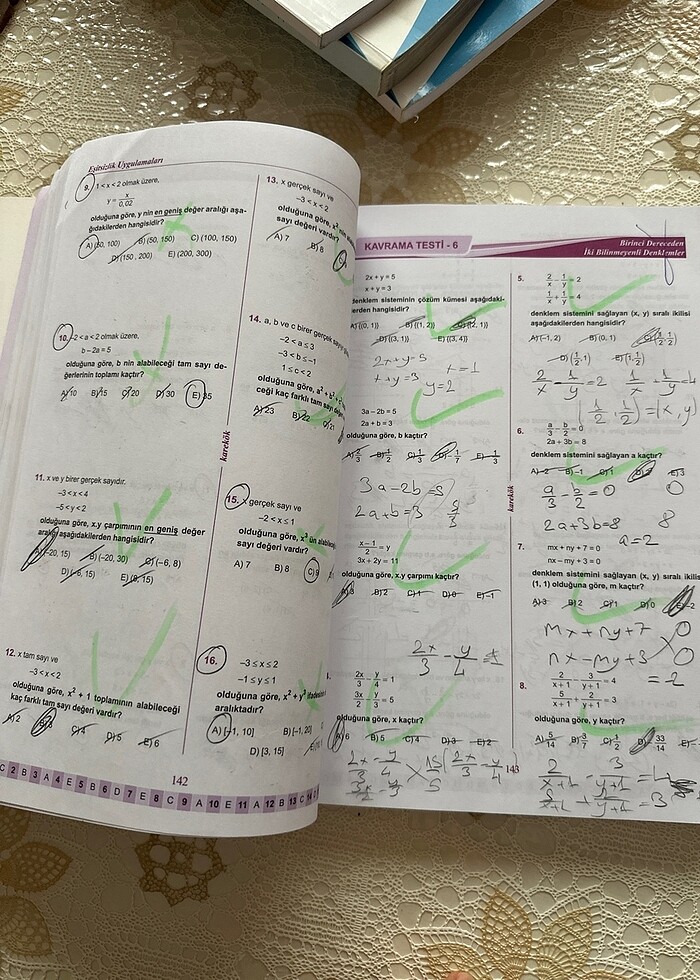 Eşitsizlik Uygulamaları
9. 1 < x < 2 olmak üzere,
y = x / 0,02
olduğuna göre, y nin en geniş değer aralığı aşa-
ğıdakilerden hangisidir?
B) (50, 150) C) (100, 150)
D) (150, 200) E) (200, 300)
10. -2 < a < 2 olmak üzere,
b – 2a = 5
olduğuna göre, b nin alabileceği tam sayı de-
ğerlerinin toplamı kaçtır?
A) 10 B) 15 C) 20 D) 30 E) 35
11. x ve y birer gerçek sayıdır.
–3 < x < 4
–5 < y < 2
olduğuna göre, x.y çarpımının en geniş değer
aralığı aşağıdakilerden hangisidir?
A) (–20, 15) B) (–20, 30) C) (–6, 8)
D) (–6, 15) E) (8, 15)
12. x tam sayı ve
–3 < x < 2
olduğuna göre, x² + 1 toplamının alabileceği
kaç farklı tam sayı değeri vardır?
A) 2 C) 4 D) 5 E) 6
13. x gerçek sayı ve
–3 < x < 2
olduğuna göre, x²
sayı değeri vardır?
A) 7 B) 8
14. a, b ve c birer gerçek
–2 < a ≤ 3
–3 < b ≤ –1
1 ≤ c < 2
olduğuna göre, a² + b² +
ceği kaç farklı tam sayı
A) 23 B) 22 D) 21
karekök
15. x gerçek sayı ve
–2 < x ≤ 1
olduğuna göre, x³ ün alabileceği
sayı değeri vardır?
A) 7 B) 8 C) 9
16. –3 ≤ x ≤ 2
–1 ≤ y ≤ 1
olduğuna göre, x² + y³ ifadesinin
aralıktadır?
A) [–1, 10] B) [–1, 20]
D) [3, 15]
142
C 2 B 3 A 4 E 5 B 6 D 7 E 8 C 9 A 10 E 11 A 12 B 13 C 14
KAVRAMA TESTİ - 6
Birinci Dereceden
İki Bilinmeyenli Denklemler
2x + y = 5
x + y = 3
denklem sisteminin çözüm kümesi aşağıdaki-
lerden hangisidir?
B) {(1, 2)} C) {(2, 1)}
D) {(3, 1)} E) {(3, 4)}
2x+y=5
x+y=3
x=1
y=2
3a – 2b = 5
2a + b = 3
olduğuna göre, b kaçtır?
3a-2b=5
2a+b=3
x–1 / 2 = y
3x + 2y = 11
olduğuna göre, x.y çarpımı kaçtır?
A) 3 B) 2 C) 1 D) 0 E) –1
2x/3 - y/4 = 1
2x/3 – y/4 = 1
3x/2 – y/3 = 5
olduğuna göre, x kaçtır?
A) 6 B) 5 C) 4 D) 3 E) 2
143
5.
2/x – 1/y = 2
1/x + 1/y = 4
denklem sistemini sağlayan (x, y) sıralı ikilisi
aşağıdakilerden hangisidir?
A) (–1, 2) B) (0, 1)
D) (1/2, 1) E) (1, 1/2)
2/x - 1/y = 2
(1/2, 1/2) = (x, y)
6.
a/3 – b/2 = 0
2a + 3b = 8
denklem sistemini sağlayan a kaçtır?
A) –2 B) –1 C) 1 D) 2 E) 3
a/3 - b/2 = 0
2a+3b=8
8
a=2
karekök
7. mx + ny + 7 = 0
nx – my + 3 = 0
denklem sistemini sağlayan (x, y) sıralı ikilisi
(1, 1) olduğuna göre, m kaçtır?
A) 3 B) 2 C) 1 D) 0 E) –2
mx+ny+7
nx-my+3
=-2
8.
2/x+1 – 3/y+1 = 4
5/x+1 + 2/y+1 = 3
olduğuna göre, y kaçtır?
A) 5/14 B) 3/7 C) 1/2